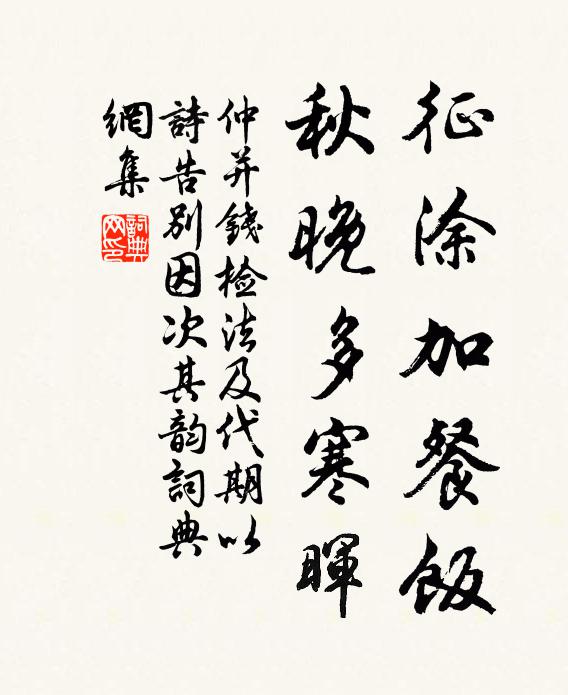 征涂加餐飯
秋晚多寒暉
仲并錢检法及代期以
詩告别因次其韵詞典
網集
詞典
网印